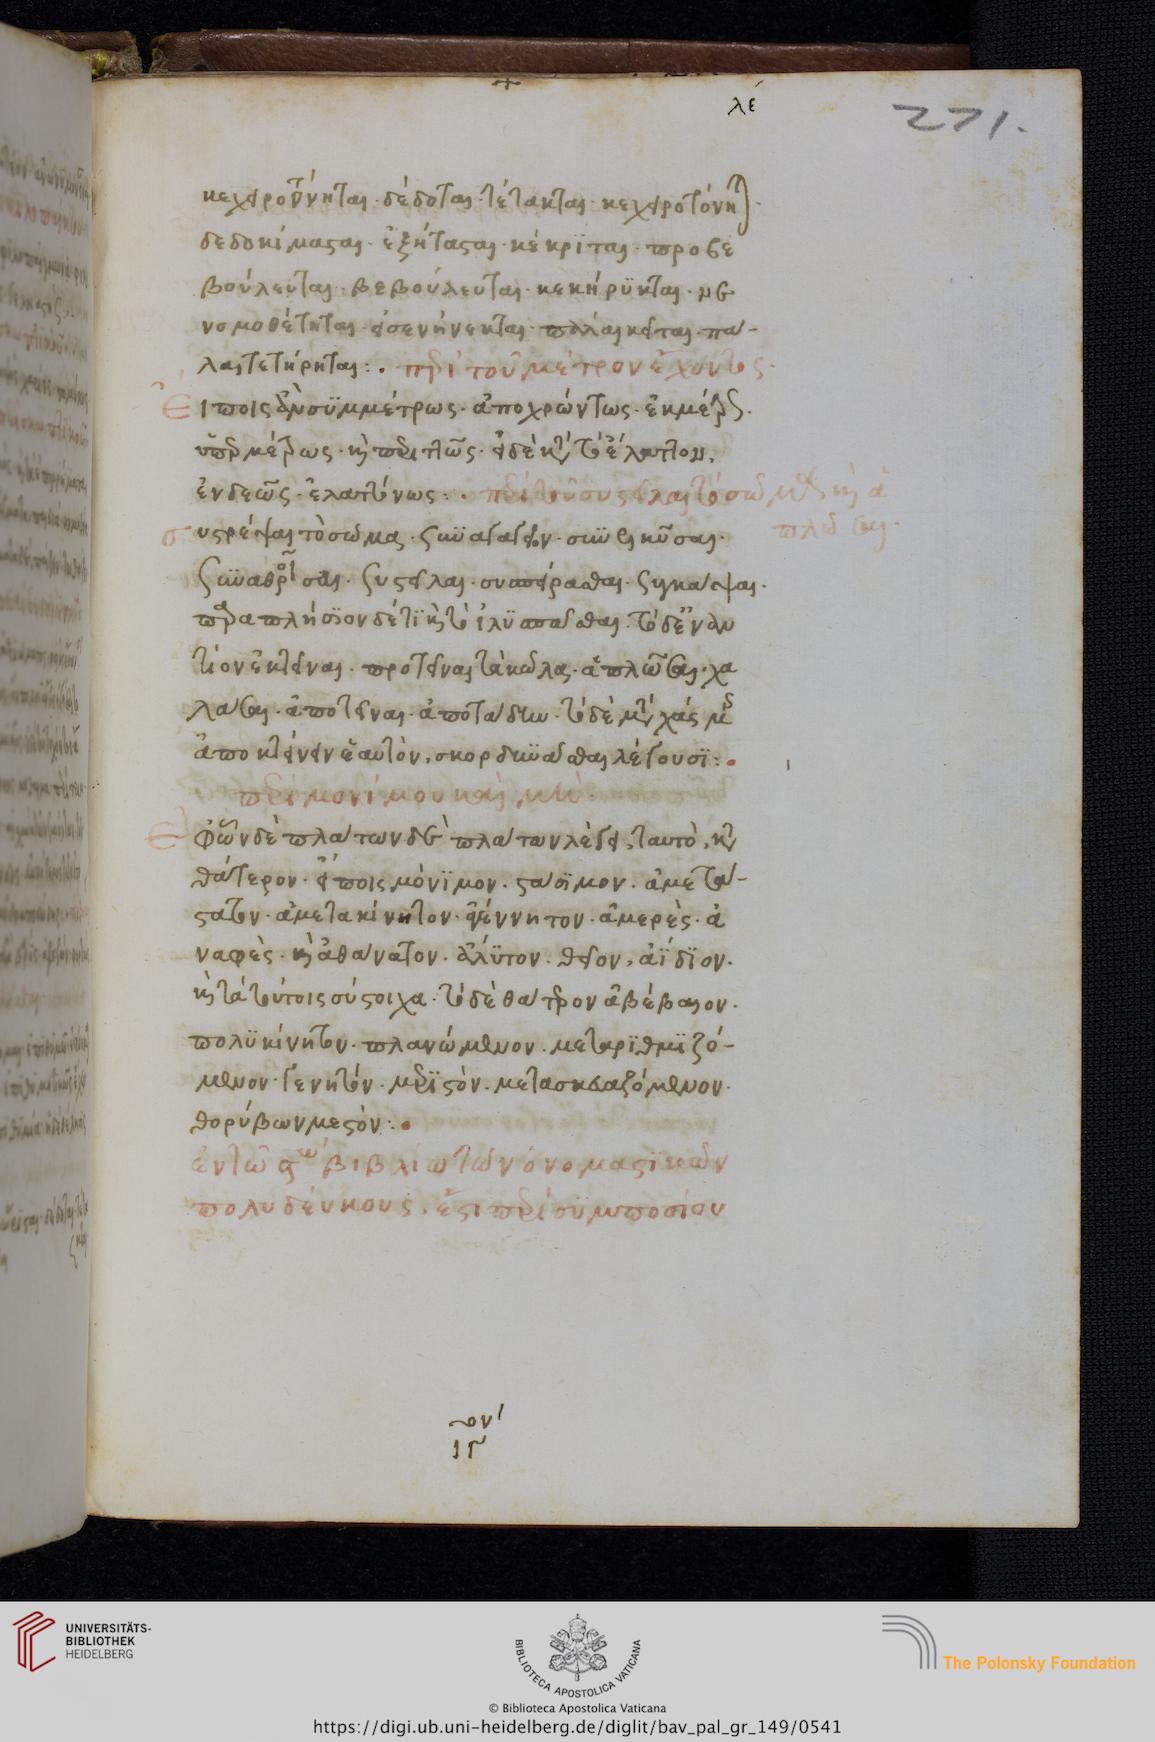 λε
271.
κεχειροτόνηται · δέδοται · τέτακται · κεχειροτόνηται ·
δεδοκίμασται · ἐξήτασται · κέκριται · προβε
βούλευται · βεβούλευται · κεκήρυκται ·
νομοθέτηται · εἰσενήνεκται · πα
λαιτετήρηται : · περὶ τοῦ μέτρον ἔχοντος ·
Εἴποις συμμέτρως · ἀποχρώντως ·
ὑπερμέτρως · καὶ περιττῶς · εἰ δὲ καὶ τὸ ἔλαττον,
ἐνδεῶς · ἐλαττόνως : · περὶ τοῦ συστεῖλαι τὸ σῶμα καὶ ἁ
πλῶσαι ·
συστρέψαι τὸ σῶμα · συναγαγεῖν ·
συναθροῖσαι · συστεῖλαι · συσπειρᾶσθαι · συγκάψαι ·
παραπλήσιον δέ τι καὶ τὸ ἰλυσπᾶσθαι · τὸ δ' ἐναν
τίον ἐκτεῖναι · προτεῖναι τὰ κῶλα · ἁπλῶσαι · χα
λάσαι · ἀποτεῖναι · ἀποτάδην · τὸ δὲ
ἀποκτείνειν ἑαυτὸν, σκορδινᾶσθαι λέγουσι : ·
περὶ μονίμου καὶ μὴ ·
Ἐφ' ὧν δὲ πλάτων ὁ πλάτων λέγει, ταυτὸ, καὶ
θάτερον · εἴποις μόνιμον · στάσιμον · ἀμετά-
στατον · ἀμετακίνητον · ἀγέννητον · ἀμερὲς · ἀ
ναφὲς · καὶ ἀθάνατον · ἄλυτον · θεῖον, ἀΐδιον ·
καὶ τὰ τούτοις σύστοιχα · τὸ δὲ θάτερον ἀβέβαιον ·
πολυκίνητον · πλανώμενον · μεταρριθμιζό-
μενον · γενητόν · μεριστόν · μετασκευαζόμενον ·
θορύβων μεστόν : ·
ἐν τῷ ϛω βιβλίω τῶν ὀνομαστικῶν
πολυδεύκους, ἔστι περὶ συμποσίου
UNIVERSITÄTS-
BIBLIOTHEK
HEIDELBERG
BIBLIOTECA APOSTOLICA VATICANA
The Polonsky Foundation
© Biblioteca Apostolica Vaticana
https://digi.ub.uni-heidelberg.de/diglit/bav_pal_gr_149/0541